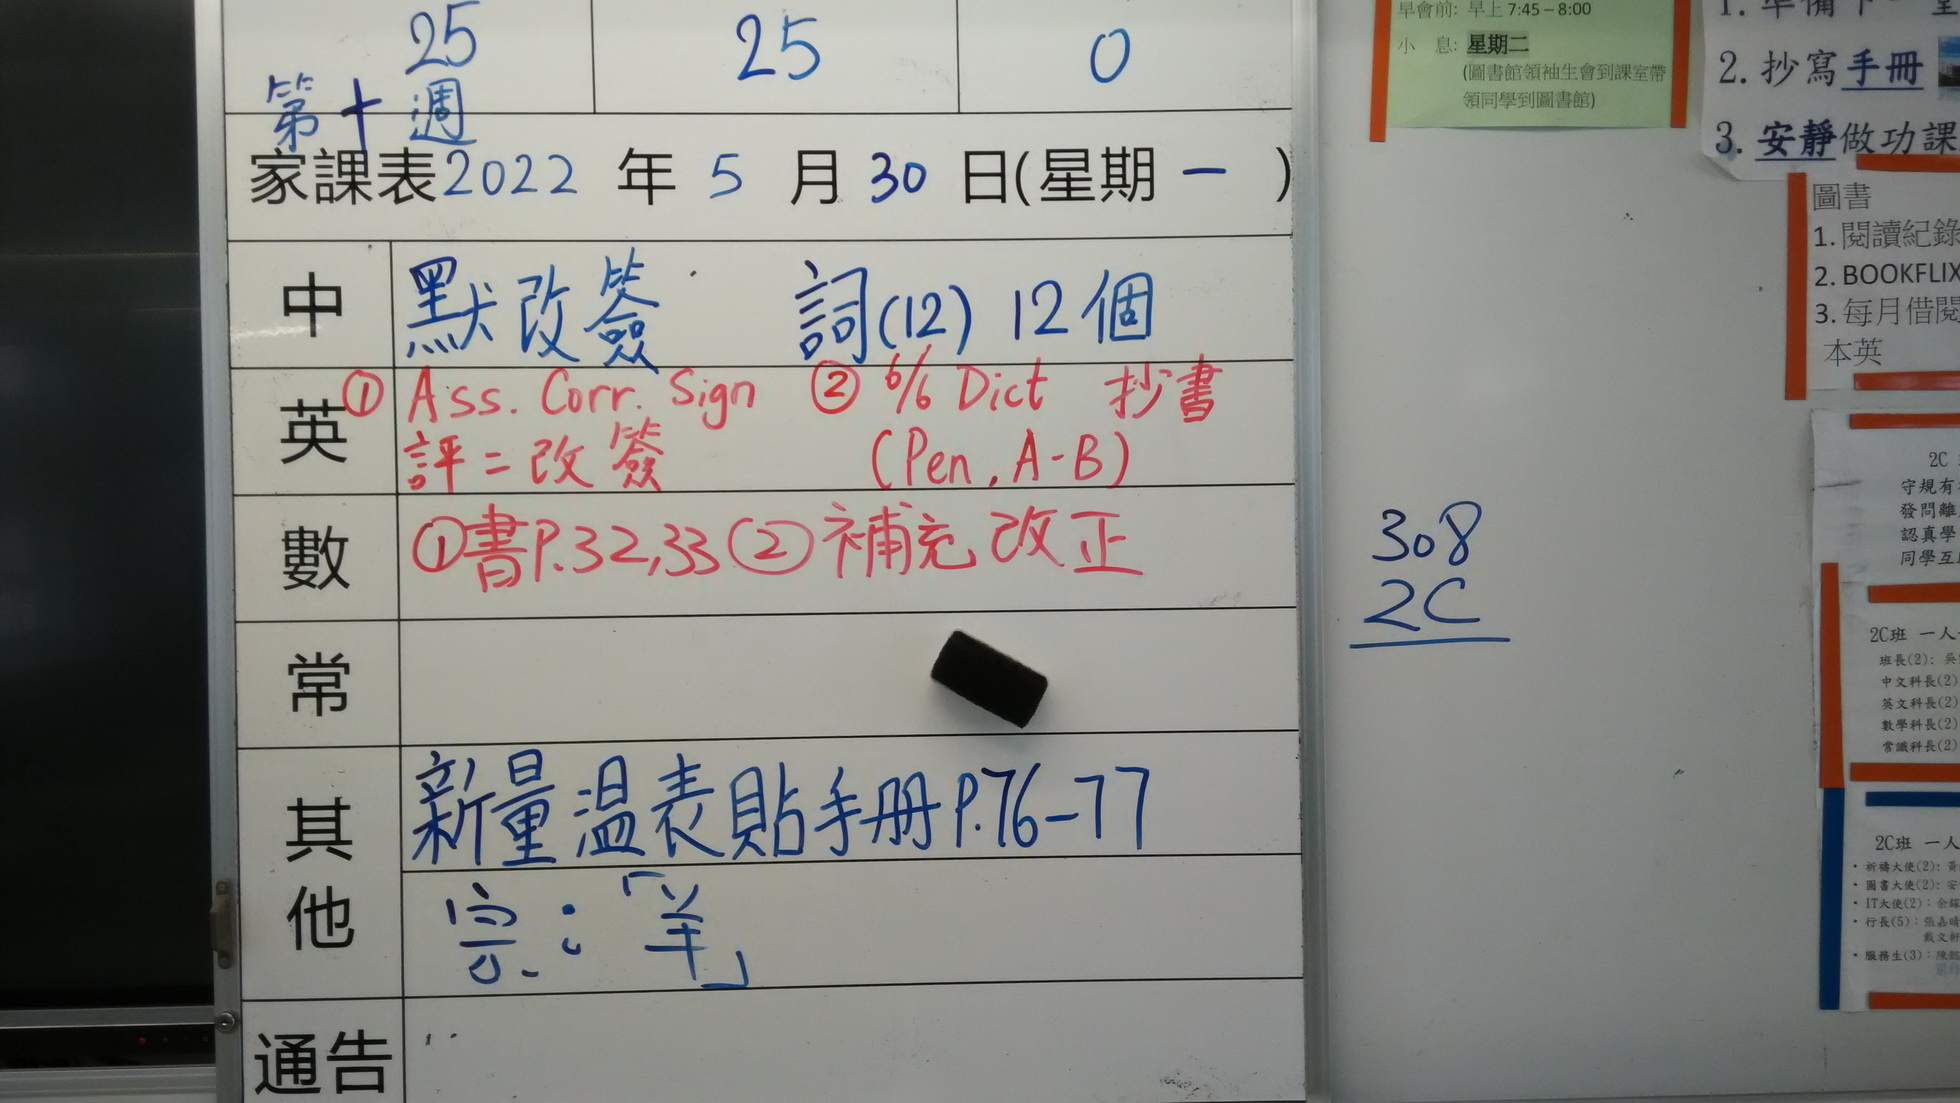 25 25 0
第十週
家課表2022年5月30日(星期一)
中 默改簽 詞(12) 12個
英 ① Ass. Corr. Sign ② 6/6 Dict 抄書
評二改簽 (Pen, A-B)
數 ①書P.32,33 ②補充改正
常
其他 新量温表貼手冊P.76-77
宗:「羊」
通告
308
2C
早會前: 早上 7:45 – 8:00
小 息: 星期二
(圖書館領袖生會到課室帶
領同學到圖書館)
1. 準備下一堂
2. 抄寫手冊
3. 安靜做功課
圖書
1. 閱讀紀錄
2. BOOKFLIX
3. 每月借閱
本英
2C
守規有
發問離
認真學
同學互
2C班 一人
班長(2): 吳
中文科長(2)
英文科長(2)
數學科長(2)
常識科長(2)
2C班 一人
• 祈禱大使(2): 黃
• 圖書大使(2): 安
• IT大使(2): 余
• 行長(5): 張嘉晴
戴文
• 服務生(3): 陳